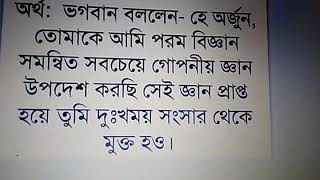 অর্থ: ভগবান বললেন- হে অর্জুন,
তোমাকে আমি পরম বিজ্ঞান
সমন্বিত সবচেয়ে গোপনীয় জ্ঞান
উপদেশ করছি সেই জ্ঞান প্রাপ্ত
হয়ে তুমি দুঃখময় সংসার থেকে
মুক্ত হও।